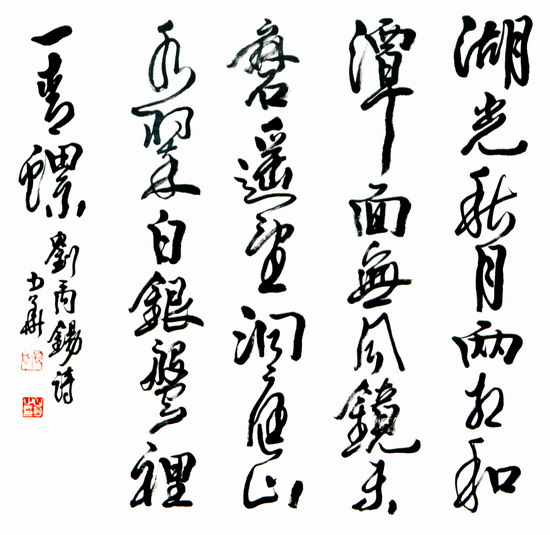 湖光秋月兩相和
潭面無風鏡未
磨遙望洞庭山
水翠白銀盤裡
一青螺
劉禹錫詩